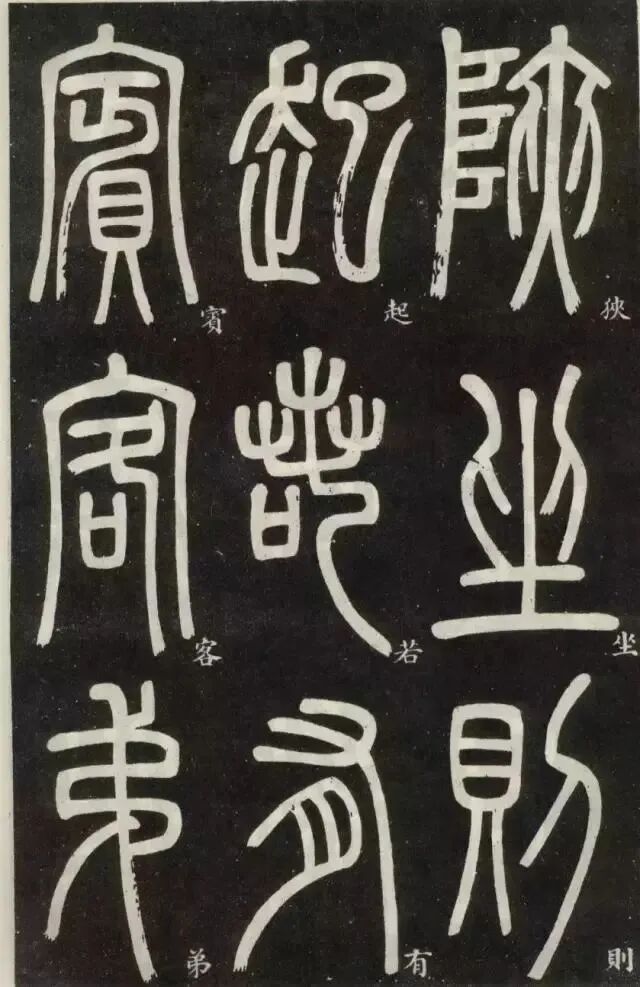 陜坐則
狹坐則
起若有
起若有
賓客弟
賓客弟